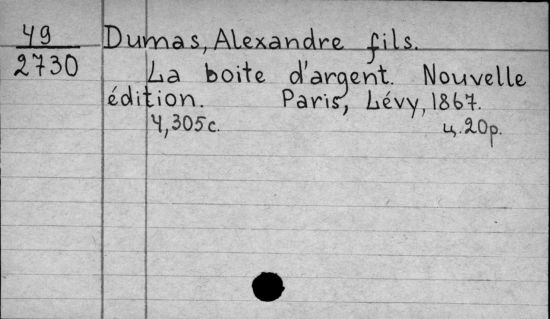 49 Dumas, Alexandre fils.
2730 La boite d'argent. Nouvelle
édition. Paris, Lévy, 1867.
4,305 c. ц. 20 р.